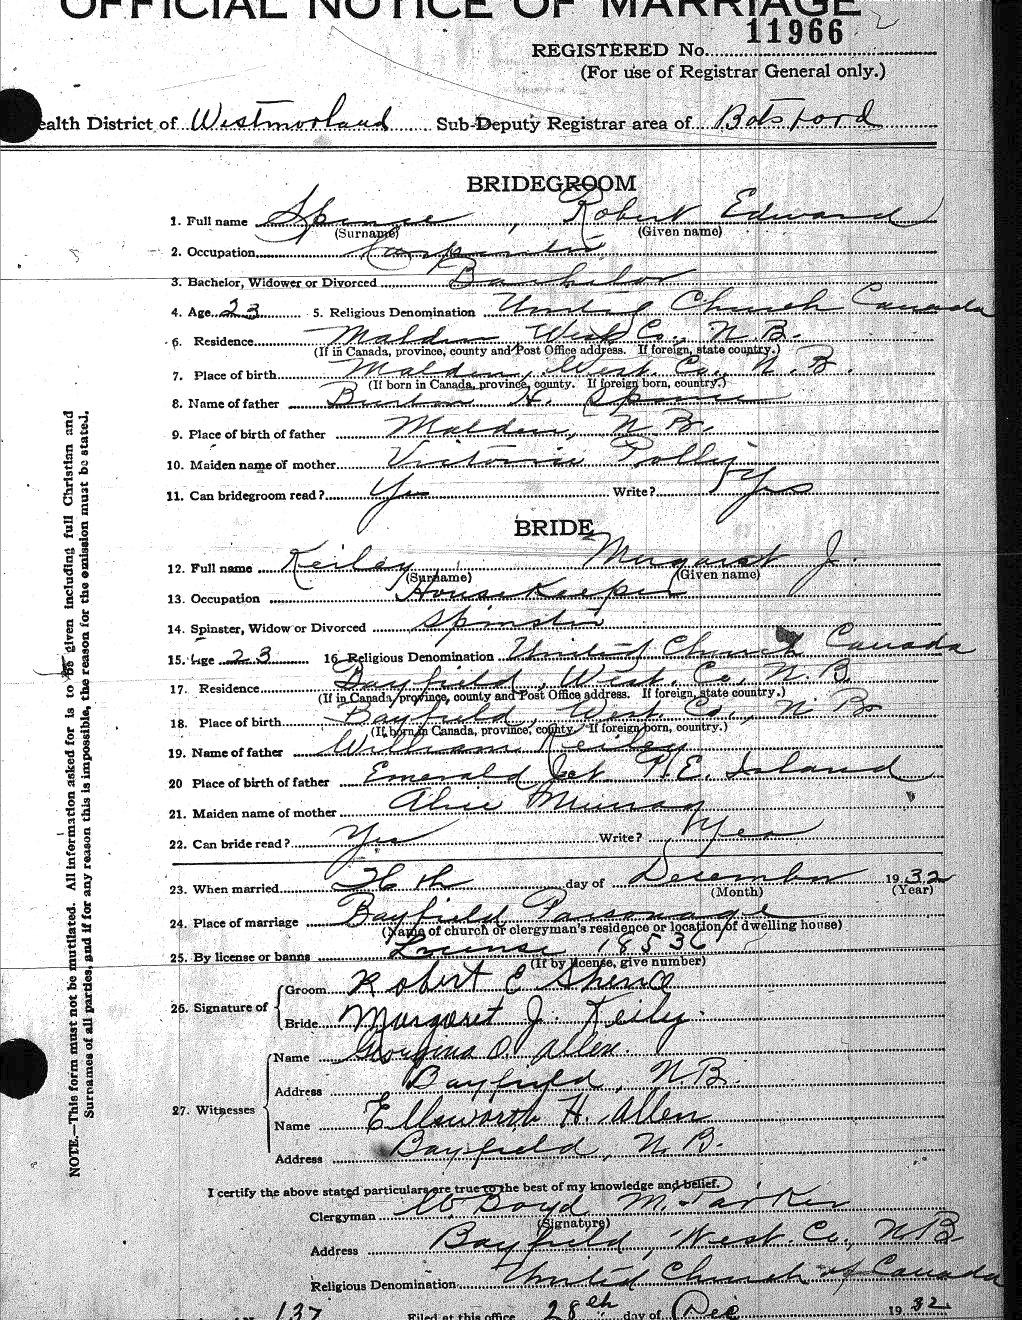 OFFICIAL NOTICE OF MARRIAGE
11966
REGISTERED No.
(For use of Registrar General only.)
ealth District of Westmorland Sub-Deputy Registrar area of Botsford
BRIDEGROOM
1. Full name Spence, Robert Edward
(Surname) (Given name)
2. Occupation Carpenter
3. Bachelor, Widower or Divorced Bachelor
4. Age 23 5. Religious Denomination United Church Canada
6. Residence Malden West. Co., N.B.
(If in Canada, province, county and Post Office address. If foreign, state country.)
7. Place of birth Malden, West. Co., N.B.
(If born in Canada, province, county. If foreign born, country.)
8. Name of father Burton H. Spence
9. Place of birth of father Malden, N.B.
10. Maiden name of mother Victoria Polley
11. Can bridegroom read? Yes Write? Yes
BRIDE
12. Full name Keiley Margaret J.
(Surname) (Given name)
13. Occupation Housekeeper
14. Spinster, Widow or Divorced Spinster
15. Age 23 16. Religious Denomination United Church Canada
17. Residence Bayfield, West. Co., N.B.
(If in Canada, province, county and Post Office address. If foreign, state country.)
18. Place of birth Bayfield, West. Co., N.B.
(If born in Canada, province, county. If foreign born, country.)
19. Name of father William Keiley
20 Place of birth of father Emerald Jct P.E. Island
21. Maiden name of mother Alice Murray
22. Can bride read? Yes Write? Yes
23. When married 26th day of December 1932
(Month) (Year)
24. Place of marriage Bayfield Parsonage
(Name of church or clergyman's residence or location of dwelling house)
25. By license or banns License 18536
(If by license, give number)
26. Signature of Groom Robert E Spence
Bride Margaret J. Keiley.
27. Witnesses Name Georgina O. Allen.
Address Bayfield, N.B.
Name Ellsworth H. Allen
Address Bayfield, N.B.
I certify the above stated particulars are true to the best of my knowledge and belief.
Clergyman Boyd M. Parker
(Signature)
Address Bayfield, West. Co., N.B.
Religious Denomination United Church of Canada
137 Filed at this office 28th day of Dec 1932
NOTE.—This form must not be mutilated. All information asked for is to be given including full Christian and
Surnames of all parties, and if for any reason this is impossible, the reason for the omission must be stated.